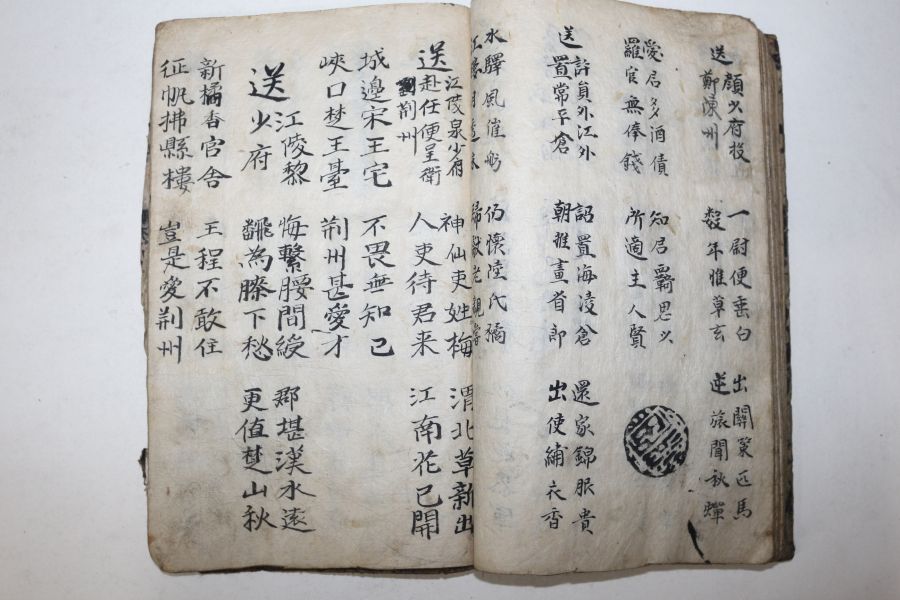 送顔少府投 一尉便垂白 出關策匹馬
鄭陳州 數年惟草玄 逆旅聞秋蟬
愛君多酒債 知君覇思少
羅官無俸錢 所適主人賢
送許員外江外 詔置海凌倉 還家錦服貴
置常平倉 朝推畫首郎 出使繡衣香
水驛風催舫 仍懷陸氏橘
月 老親嘗
送江茂泉少府 神仙吏姓梅 渭北草新出
赴任便呈衛荆州 人吏待君来 江南花已開
城邊宋王宅 不畏無知己
峽口楚王臺 荆州甚愛才
送江陵黎 悔繫腰間綬 郡堪漢水遠
少府 飜為膝下愁 更值楚山秋
新橘香官舍 王程不敢住
征帆拂縣樓 豈是愛荆州